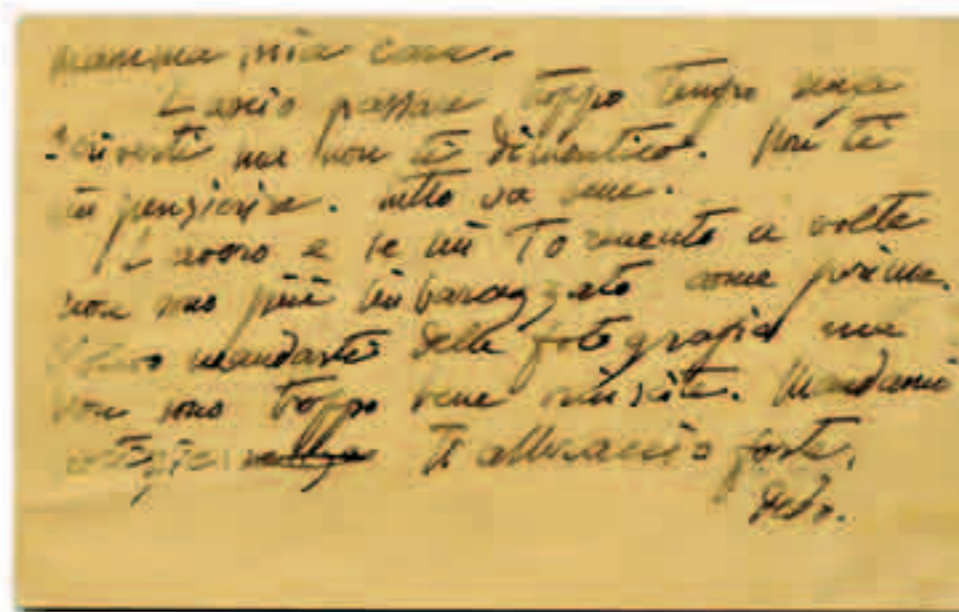 mamma mia cara.
Lascio passare troppo tempo senza
scriverti ma non ti dimentico. Non ti
in pensiero. tutto va bene.
Lavoro e se mi Tormento a volte
non sono più imbarazzato come prima.
mandarti delle fotografie ma
non sono troppo bene riuscite. Mandami
notizie Ti abbraccio forte.